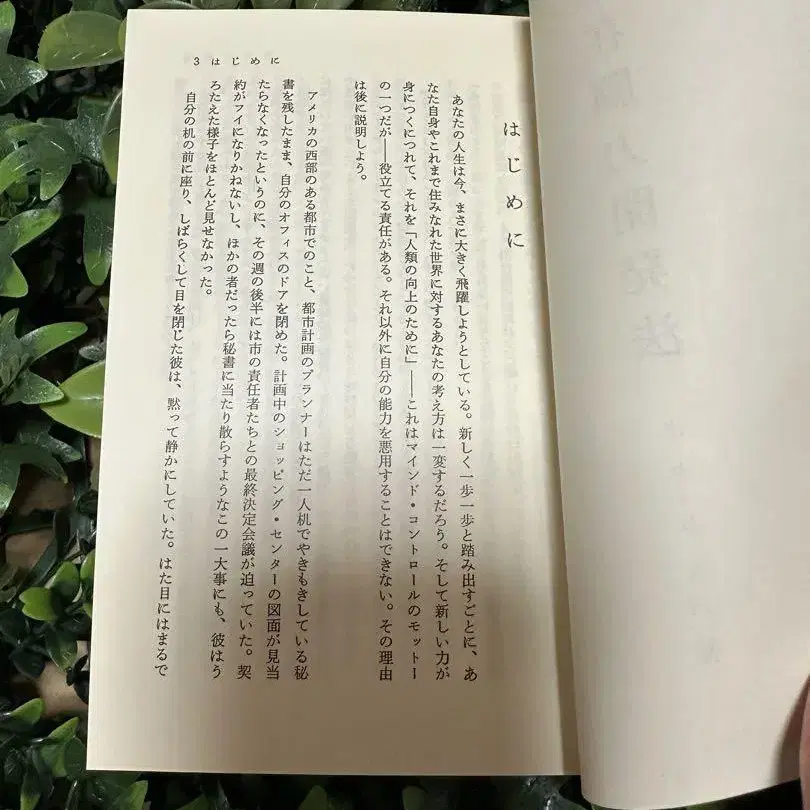 3 はじめに
はじめに
あなたの人生は今、まさに大きく飛躍しようとしている。新しく一歩一歩と踏み出すごとに、あ
なた自身やこれまで住みなれた世界に対するあなたの考え方は一変するだろう。そして新しい力が
身につくにつれて、それを「人類の向上のために」――これはマインド・コントロールのモットー
の一つだが――役立てる責任がある。それ以外に自分の能力を悪用することはできない。その理由
は後に説明しよう。
アメリカの西部のある都市でのこと、都市計画のプランナーはただ一人机でやきもきしている秘
書を残したまま、自分のオフィスのドアを閉めた。計画中のショッピング・センターの図面が見当
たらなくなったというのに、その週の後半には市の責任者たちとの最終決定会議が迫っていた。契
約がフイになりかねないし、ほかの者だったら秘書に当たり散らすようなこの一大事にも、彼はう
ろたえた様子をほとんど見せなかった。
自分の机の前に座り、しばらくして目を閉じた彼は、黙って静かにしていた。はた目にはまるで